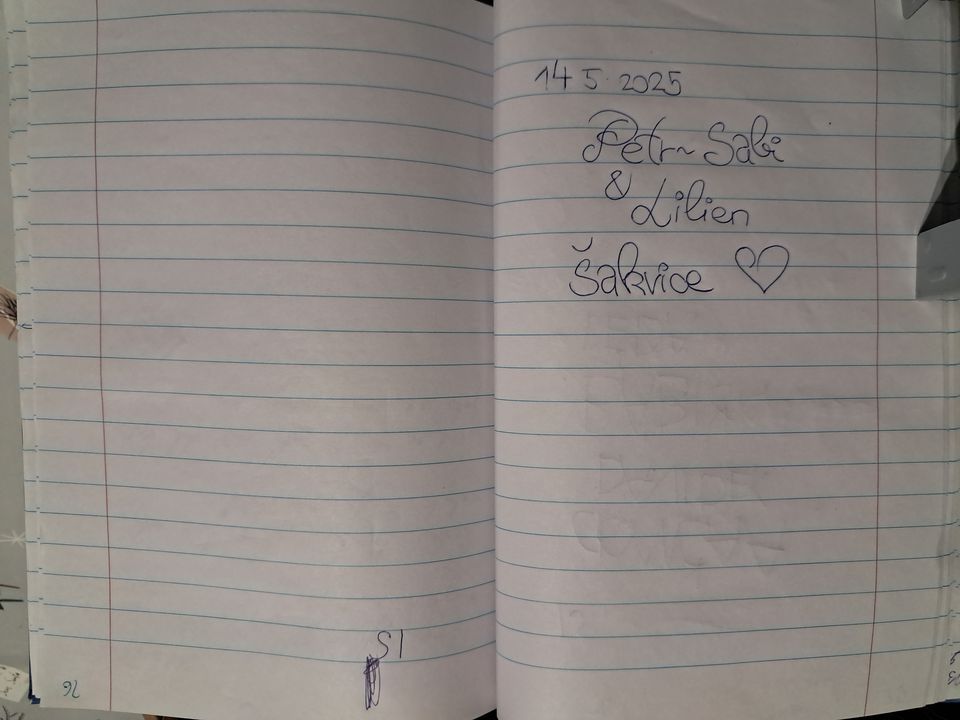 14 5. 2025
Petr~Sabi
& Lilien
Šakvice ♡